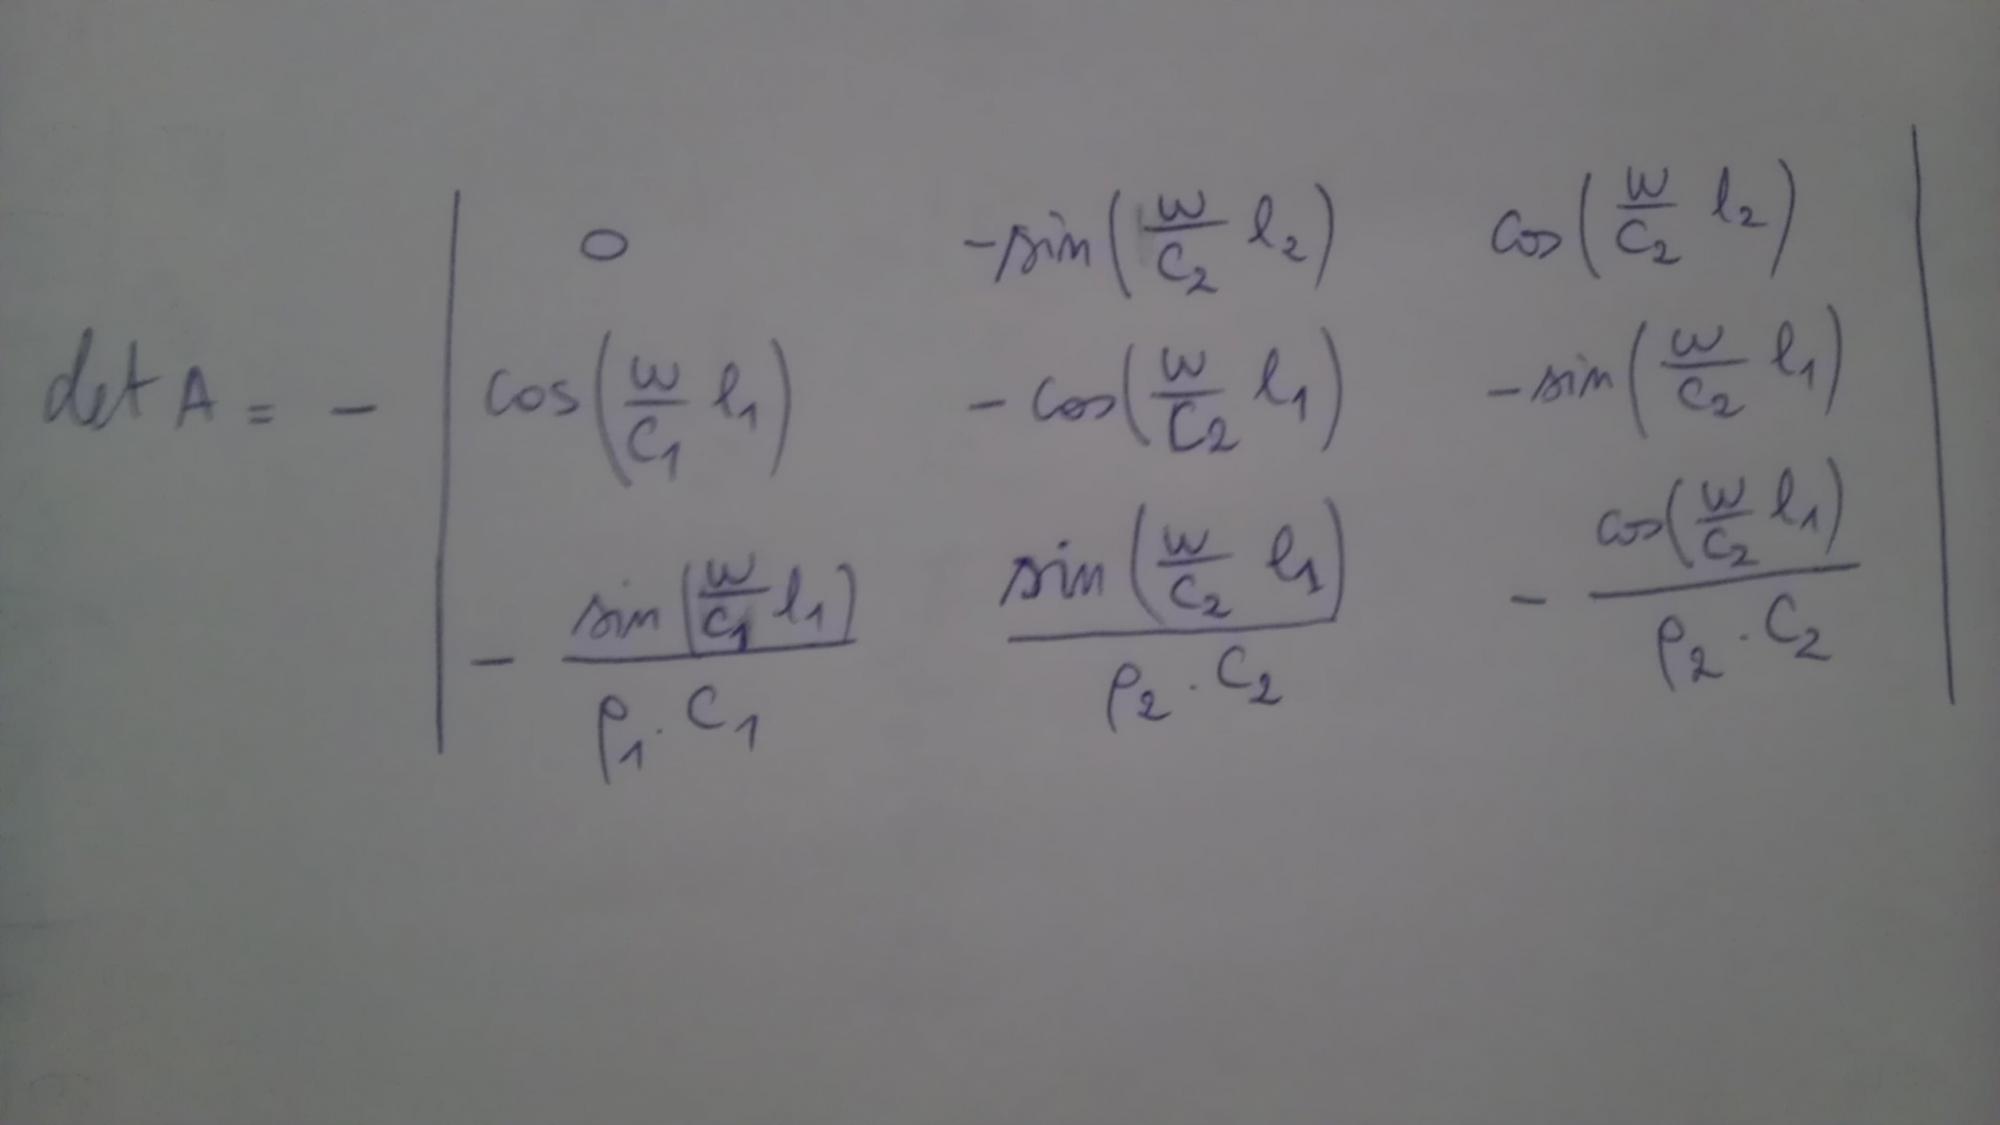 det A = - | 0 -sin(w/c₂ l₂) cos(w/c₂ l₂) |
| cos(w/c₁ l₁) -cos(w/c₂ l₁) -sin(w/c₂ l₁) |
| - sin(w/c₁ l₁)/ρ₁·c₁ sin(w/c₂ l₁)/ρ₂·c₂ - cos(w/c₂ l₁)/ρ₂·c₂ |